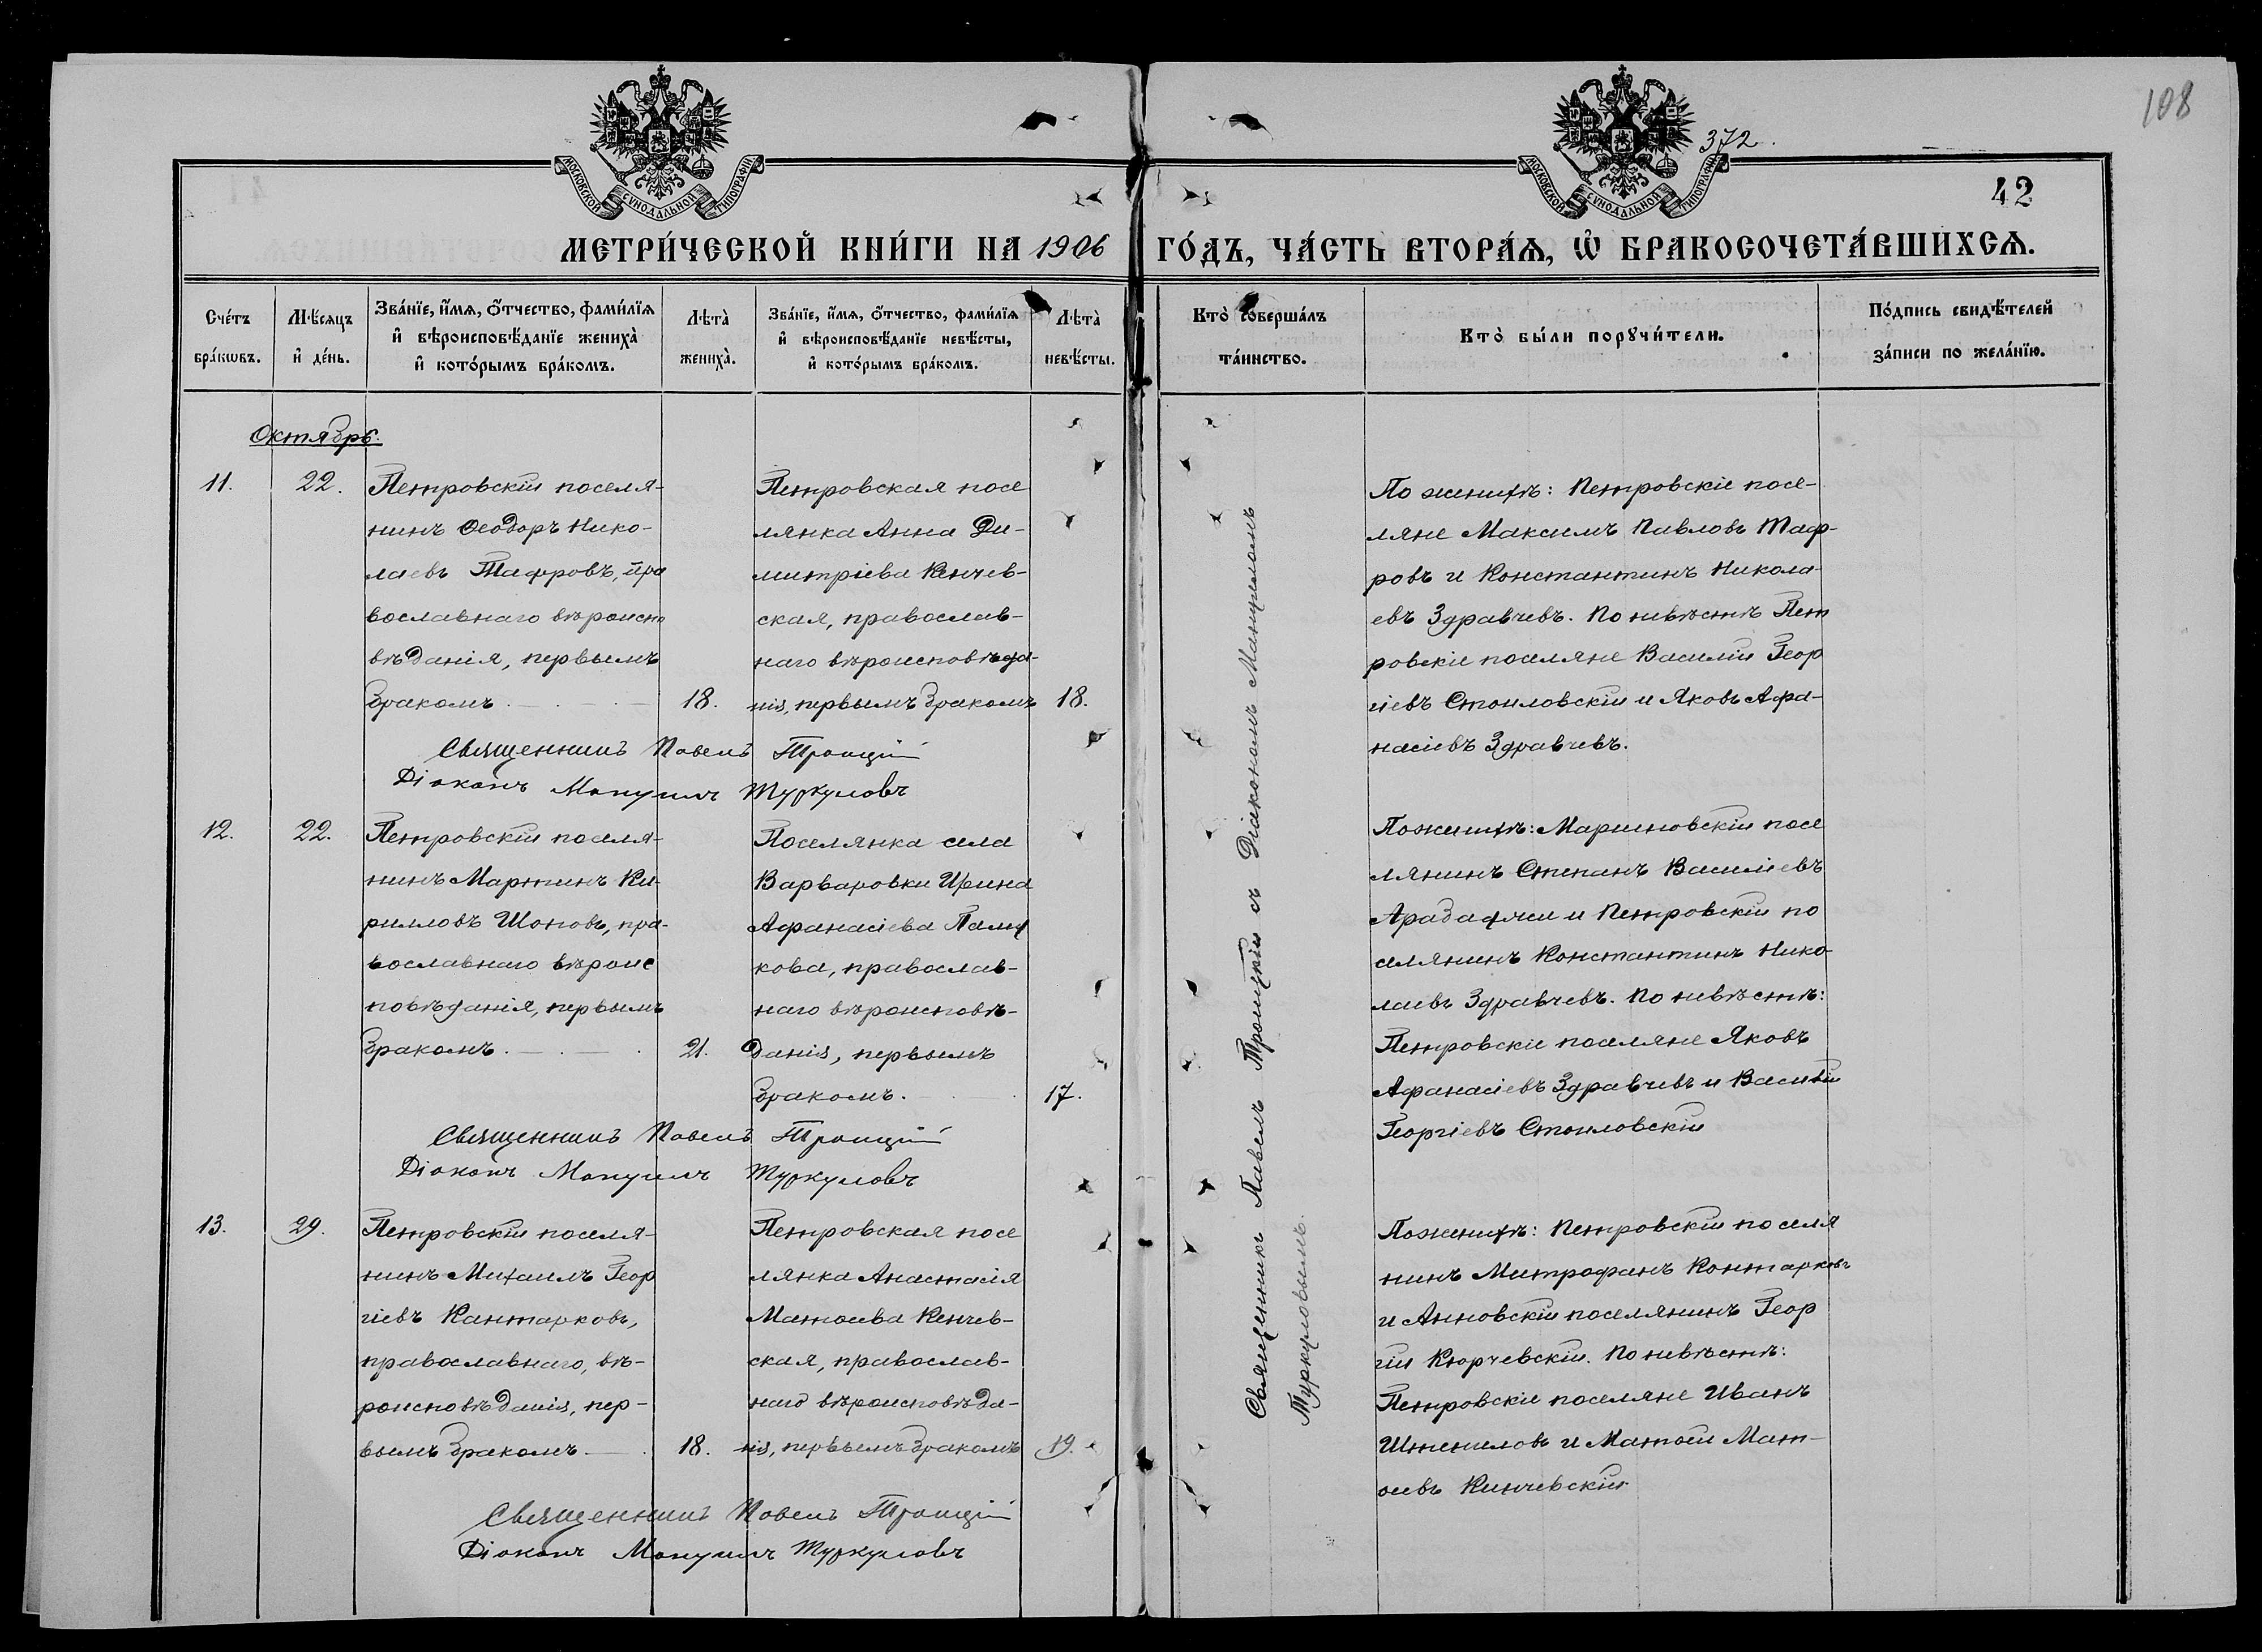 108
372.
42
МОСКОВСКОЙ СѴНОДАЛЬНОЙ ТИПОГРАФІИ
МОСКОВСКОЙ СѴНОДАЛЬНОЙ ТИПОГРАФІИ
МЕТРИ́ЧЕСКОЙ КНИ́ГИ НА 1906 ГО́ДЪ, ЧА́СТЬ ВТОРА́Я, Ѡ҆ БРАКОСОЧЕТА́ВШИХСЯ.
Сче́тъ
бра́кѡвъ.
Мѣ́сяцъ
и҆ де́нь.
Зва́нїе, и҆́мя, ѻ҆́тчество, фами́лїя
и҆ вѣроисповѣ́данїе жениха̀
и҆ кото́рымъ бра́комъ.
Лѣта̀
жениха̀.
Зва́нїе, и҆́мя, ѻ҆́тчество, фами́лїя
и҆ вѣроисповѣ́данїе невѣ́сты,
и҆ кото́рымъ бра́комъ.
Лѣта̀
невѣ́сты.
Кто̀ соверша́лъ
та́инство.
Кто̀ бы́ли порꙋчи́тели.
По́дпись свидѣ́телей
за́писи по жела́нїю.
Октябрь.
11.
22.
Петровскій поселя-
нинъ Ѳеодоръ Нико-
лаевъ Тафровъ, пра
вославнаго вѣроиспо
вѣданія, первымъ
бракомъ
18.
Петровская посе
лянка Анна Ди-
митріева Кенчев-
ская, православ-
наго вѣроисповѣда-
нія, первымъ бракомъ
18.
По женихѣ: Петровскіе посе-
ляне Максимъ Павловъ Таф-
ровъ и Константинъ Никола-
евъ Здравчевъ. По невѣстѣ Пет
ровскіе поселяне Василій Геор
гіевъ Стоиловскій и Яковъ Афа-
насіевъ Здравчевъ.
Священникъ Павелъ Троицкій
Діаконъ Мануилъ Туркуловъ
12.
22.
Петровскій поселя-
нинъ Мартинъ Ки-
рилловъ Шоповъ, пра-
вославнаго вѣроис
повѣданія, первымъ
бракомъ.
21.
Поселянка села
Варваровки Ирина
Афанасіева
кова, православ-
наго вѣроисповѣ-
данія, первымъ
бракомъ.
17.
По женихѣ: Мариновскій посе
лянинъ Степанъ Василіевъ
Арабаджи и Петровскій по
селянинъ Константинъ Нико-
лаевъ Здравчевъ. По невѣстѣ:
Петровскіе поселяне Яковъ
Афанасіевъ Здравчевъ и Василій
Георгіевъ Стоиловскій
Священникъ Павелъ Троицкій
Діаконъ Мануилъ Туркуловъ
13.
29.
Петровскій поселя-
нинъ Михаилъ Геор
гіевъ Кантарковъ,
православнаго, вѣ-
роисповѣданія, пер-
вымъ бракомъ
18.
Петровская посе
лянка Анастасія
Матоева Кенчев-
ская, православ-
наго вѣроисповѣда-
нія, первымъ бракомъ
19.
По женихѣ: Петровскій поселя
нинъ Митрофанъ Контарковъ
и Анновскій поселянинъ Геор
гій Кюрчевскій. По невѣстѣ:
Петровскіе поселяне Иванъ
и Матой Мат-
оевъ Кинчевскій
Священникъ Павелъ Троицкій
Діаконъ Мануилъ Туркуловъ
Священникъ Павелъ Троицкій съ Діакономъ Мануиломъ
Туркуловымъ.